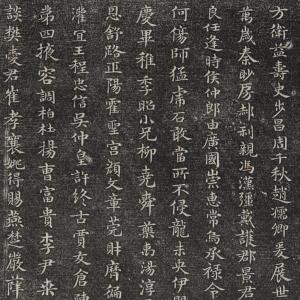 方衛益壽史步昌周千秋趙孺卿爰展世
萬歲秦眇房郝利親馮漢彊戴護郡景君
良任逢時侯仲郎由廣國榮惠常烏承祿令
何傷師猛虎石敢當所不侵龍未央伊
慶畢稚季昭小兄柳堯舜藥禹湯淳
恩舒路正陽霍聖宮顏文章莞財歷偏
灌宜王程忠信吳仲皇許終古賈友倉陳
第四掖容調柏杜楊曹富貴李尹桑
談樊愛君崔孝襄姚得賜燕楚嚴薛